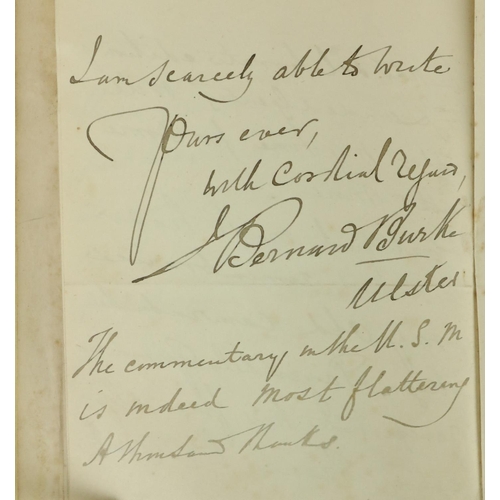 I am scarcely able to write
Yours ever,
with Cordial regard,
J Bernard Burke
Ulster
The commentary in the U. S. M
is indeed most flattering
A thousand thanks.